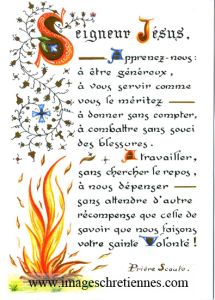 Seigneur Jésus,
Apprenez-nous:
à être généreux,
à vous servir comme
vous le méritez
à donner sans compter,
à combattre sans souci
des blessures.
A travailler,
sans chercher le repos,
à nous dépenser
sans attendre d'autre
récompense que celle de
savoir que nous faisons
votre sainte Volonté!
Prière Scoute.
www.imageschretiennes.com